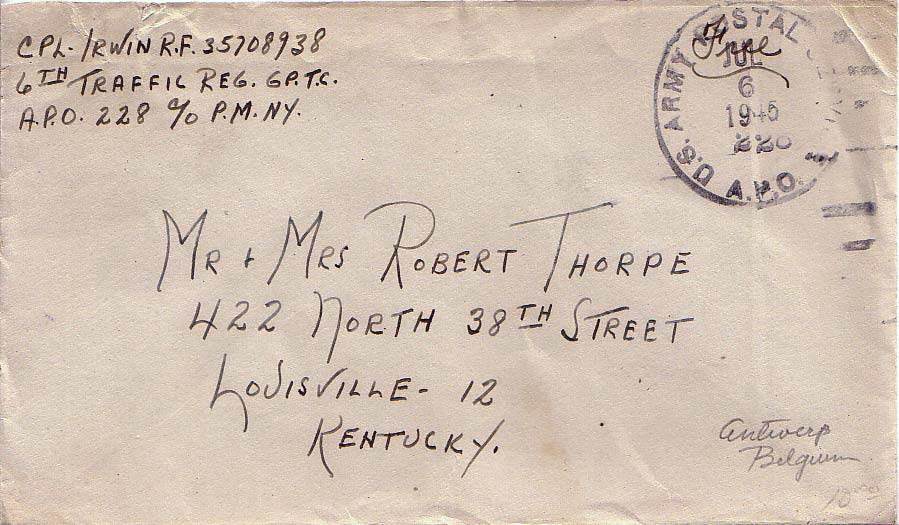 CPL. IRWIN R.F. 35708938
6TH TRAFFIC REG. GP. T.C.
A.P.O. 228 c/o P.M. NY.
Free
U.S. ARMY POSTAL
JUL
6
1945
228
A.P.O.
Mr + Mrs Robert Thorpe
422 North 38TH Street
Louisville - 12
Kentucky.
Antwerp
Belgium